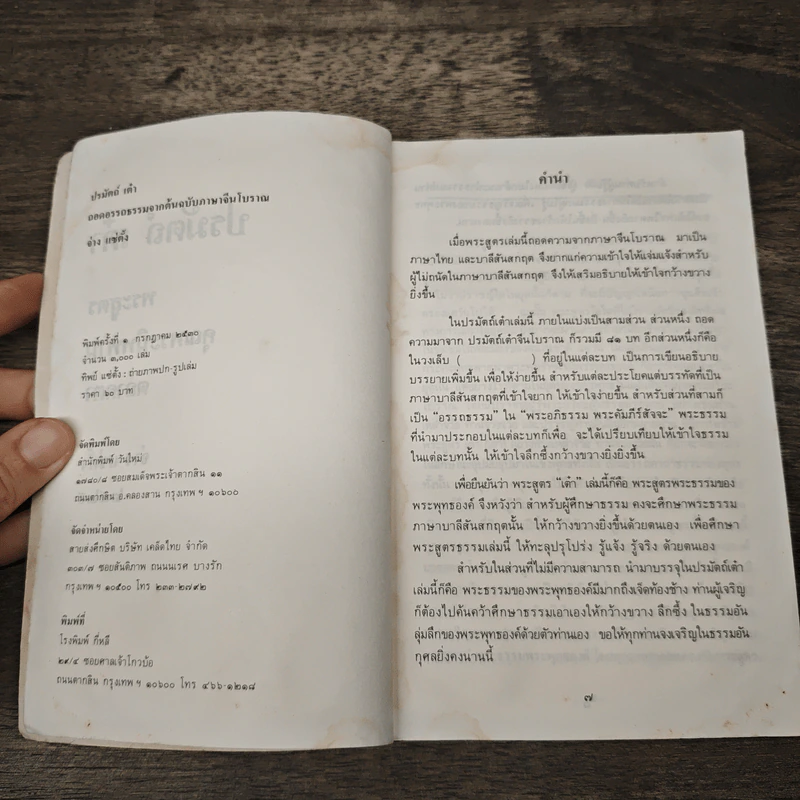 ปรมัตถ์ เต๋า
ถอดอรรถธรรมจากต้นฉบับภาษาจีนโบราณ
จ่าง แซ่ตั้ง
พิมพ์ครั้งที่ ๑ กรกฎาคม ๒๕๓๐
จำนวน ๓,๐๐๐ เล่ม
ทิพย์ แซ่ตั้ง : ถ่ายภาพปก-รูปเล่ม
ราคา ๖๐ บาท
จัดพิมพ์โดย
สำนักพิมพ์ วันใหม่
๑๗๘๐/๘ ซอยสมเด็จพระเจ้าตากสิน ๑๑
ถนนตากสิน อ.คลองสาน กรุงเทพ ฯ ๑๐๖๐๐
จัดจำหน่ายโดย
สายส่งศึกษิต บริษัท เคล็ดไทย จำกัด
๓๐๓/๗ ซอยสันติภาพ ถนนนเรศ บางรัก
กรุงเทพ ฯ ๑๐๕๐๐ โทร ๒๓๓-๒๗๙๒
พิมพ์ที่
โรงพิมพ์ กี่หลี
๒๙/๔ ซอยศาลเจ้าโกวบ้อ
ถนนตากสิน กรุงเทพ ฯ ๑๐๖๐๐ โทร ๔๖๖-๑๒๑๘
คำนำ
เมื่อพระสูตรเล่มนี้ถอดความจากภาษาจีนโบราณ มาเป็น
ภาษาไทย และบาลีสันสกฤต จึงยากแก่ความเข้าใจให้แจ่มแจ้งสำหรับ
ผู้ไม่ถนัดในภาษาบาลีสันสกฤต จึงให้เสริมอธิบายให้เข้าใจกว้างขวาง
ยิ่งขึ้น
ในปรมัตถ์เต๋าเล่มนี้ ภายในแบ่งเป็นสามส่วน ส่วนหนึ่ง ถอด
ความมาจาก ปรมัตถ์เต๋าจีนโบราณ ก็รวมมี ๘๑ บท อีกส่วนหนึ่งก็คือ
ในวงเล็บ ( ) ที่อยู่ในแต่ละบท เป็นการเขียนอธิบาย
บรรยายเพิ่มขึ้น เพื่อให้ง่ายขึ้น สำหรับแต่ละประโยคแต่บรรทัดที่เป็น
ภาษาบาลีสันสกฤตที่เข้าใจยาก ให้เข้าใจง่ายขึ้น สำหรับส่วนที่สามก็
เป็น “อรรถธรรม” ใน “พระอภิธรรม พระคัมภีร์สัจจะ” พระธรรม
ที่นำมาประกอบในแต่ละบทก็เพื่อ จะได้เปรียบเทียบให้เข้าใจธรรม
ในแต่ละบทนั้น ให้เข้าใจลึกซึ้งกว้างขวางยิ่งยิ่งขึ้น
เพื่อยืนยันว่า พระสูตร “เต๋า” เล่มนี้ก็คือ พระสูตรพระธรรมของ
พระพุทธองค์ จึงหวังว่า สำหรับผู้ศึกษาธรรม คงจะศึกษาพระธรรม
ภาษาบาลีสันสกฤตนั้น ให้กว้างขวางยิ่งขึ้นด้วยตนเอง เพื่อศึกษา
พระสูตรธรรมเล่มนี้ ให้ทะลุปรุโปร่ง รู้แจ้ง รู้จริง ด้วยตนเอง
สำหรับในส่วนที่ไม่มีความสามารถ นำมาบรรจุในปรมัตถ์เต๋า
เล่มนี้ก็คือ พระธรรมของพระพุทธองค์มีมากถึงเจ็ดท้องช้าง ท่านผู้เจริญ
ก็ต้องไปค้นคว้าศึกษาธรรมเอาเองให้กว้างขวาง ลึกซึ้ง ในธรรมอัน
ลุ่มลึกของพระพุทธองค์ด้วยตัวท่านเอง ขอให้ทุกท่านจงเจริญในธรรมอัน
กุศลยิ่งคงนานนี้
๗